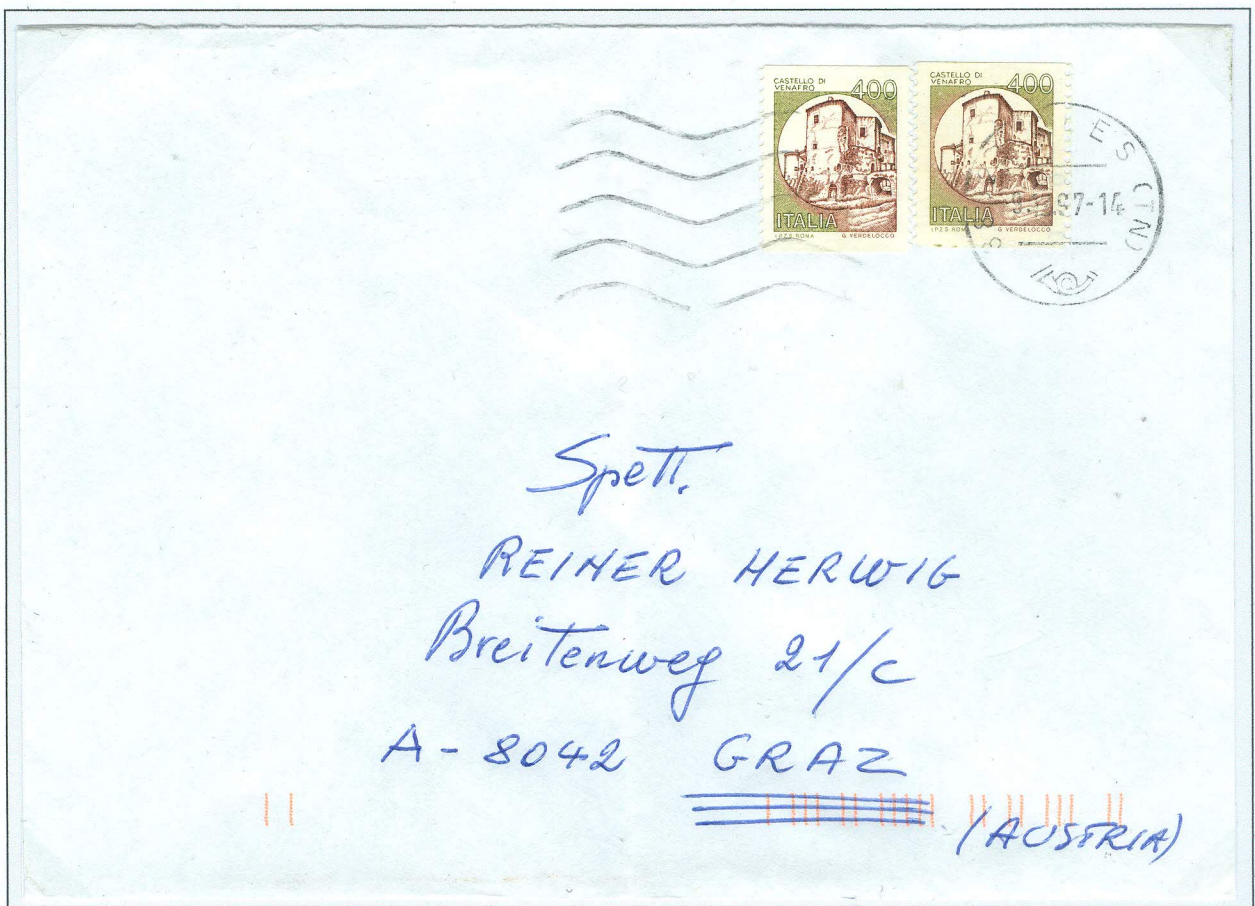 CASTELLO DI
VENAFRO
400
ITALIA
I.P.Z.S. ROMA
G. VERDELOCCO
CASTELLO DI
VENAFRO
400
ITALIA
I.P.Z.S. ROMA
G. VERDELOCCO
(TN)
97-14
Spett.
REINER HERWIG
Breitenweg 21/c
A-8042 GRAZ
(AUSTRIA)